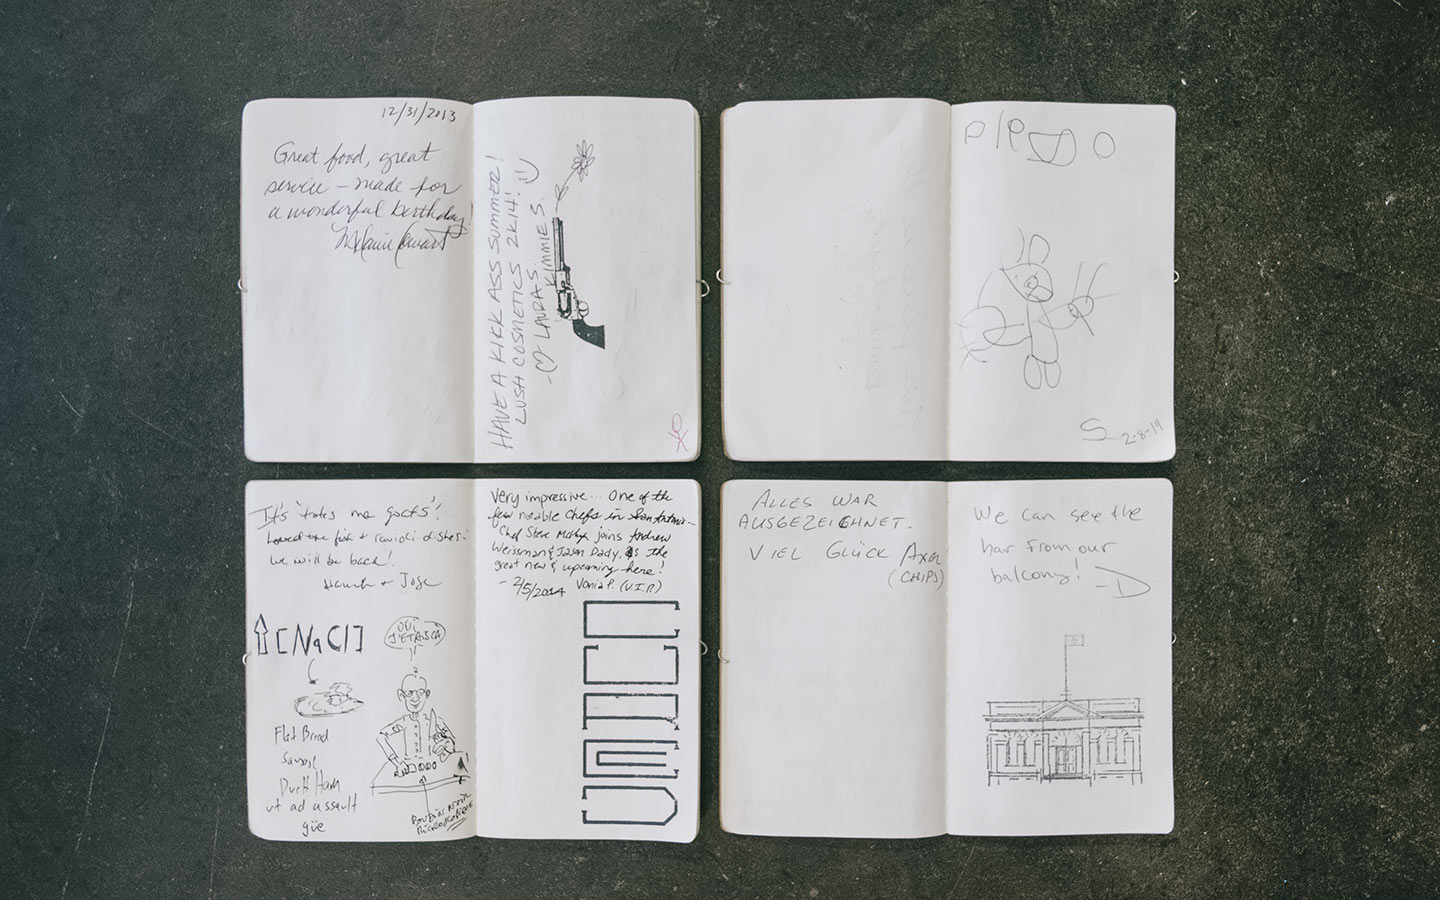 12/31/2013
Great food, great
service – made for
a wonderful birthday!
HAVE A KIKK ASS SUMMER!
LUSH COSMETICS 2K14! :)
-♡ LAURA S.
KIMMIE S.
S 2-8-14
It's
Loved the fish & ravioli dishes!
we will be back!
& Jose
[NaCl]
OUI
Flat Bread
Duck Ham
Very impressive... One of the
few notable Chefs in San Antonio –
Chef Steve joins Andrew
Weissman & Jason Dady, as the
great new & upcoming here!
- 2/5/2014 Vonia P. (V.I.P.)
ALLES WAR
AUSGEZEICHNET.
VIEL GLÜCK AXEL
(CHIPS)
We can see the
bar from our
balcony! -D